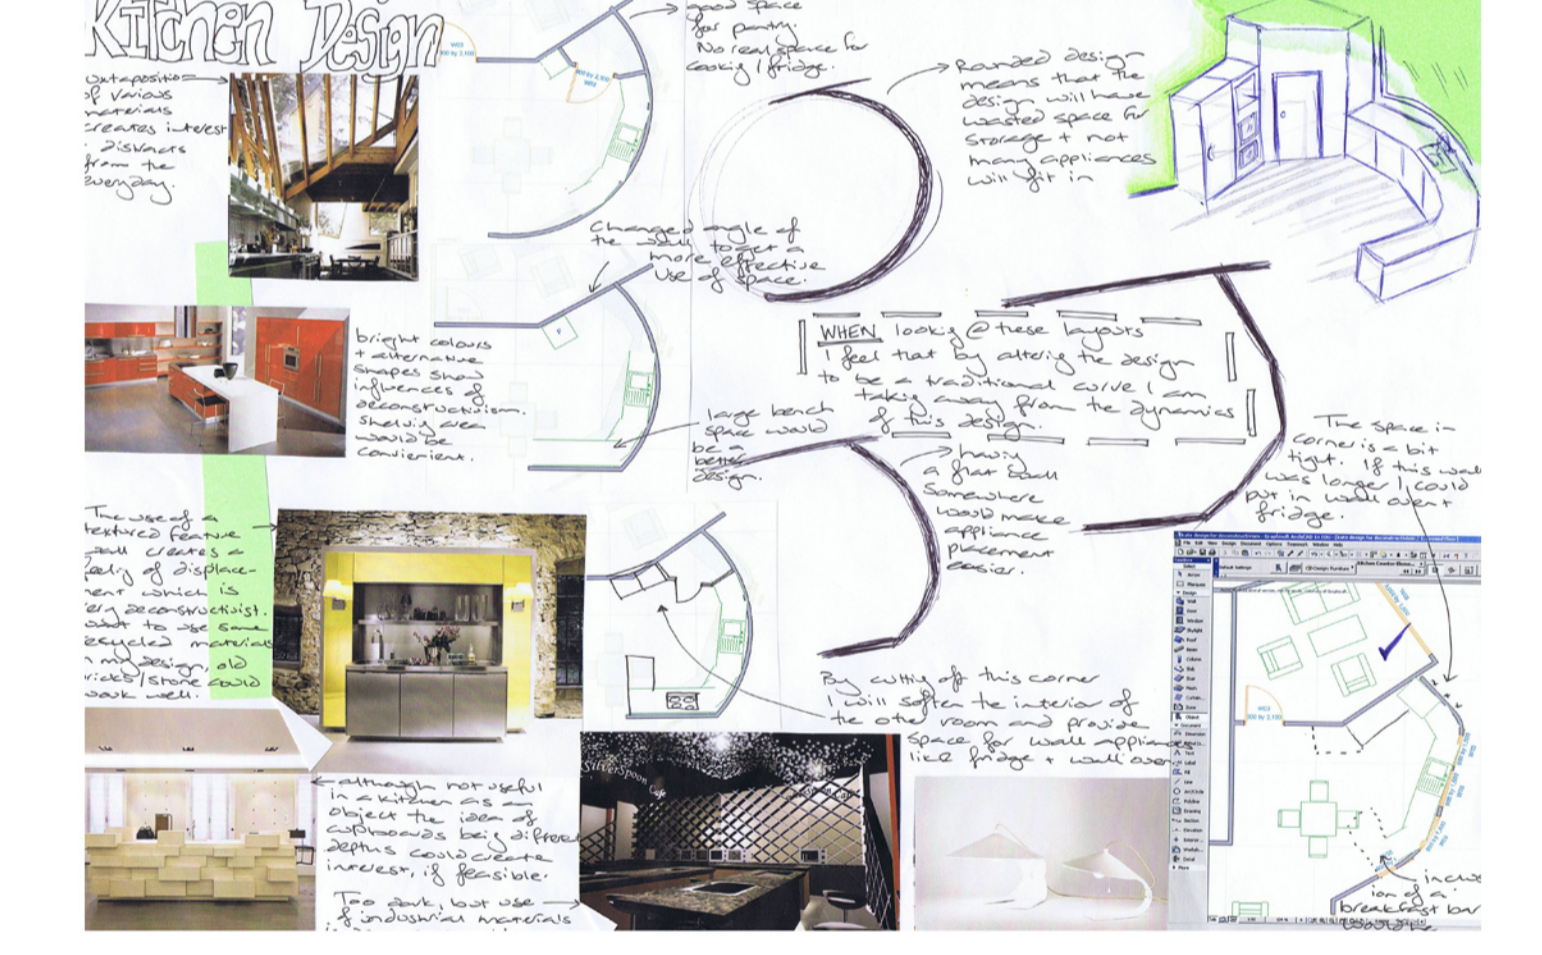 Kitchen Design
juxtaposition
of various
materials
creates interest
+ distracts
from the
everyday.
good space
for pantry.
No real space for
cooking / fridge.
Rounded design
means that the
design will have
wasted space for
storage + not
many appliances
will fit in
Changed angle of
the wall to get a
more effective
use of space.
bright colours
+ alternative
shapes show
influences of
deconstructivism.
Shelving area
would be
convienient.
WHEN looking @ these layouts
I feel that by altering the design
to be a traditional curve I am
taking away from the dynamics
of this design.
large bench
space would
be a
better
design.
having
a flat wall
somewhere
would make
appliance
placement
easier.
The space in
corner is a bit
tight. If this wall
was longer I could
put in wall oven +
fridge.
The use of a
textured feature
wall creates a
feeling of displace-
ment which is
very deconstructivist.
want to use some
recycled materials
in my design, old
bricks/stone could
work well.
By cutting off this corner
I will soften the interior of
the other room and provide
space for wall appliances
like fridge + wall oven
SilverSpoon
Cafe
although not useful
in a kitchen as an
object the idea of
cupboards being different
depths could create
interest, if feasible.
Too dark, but use
of industrial materials
W03
900 by 2,100
inclus
ion of a
breakfast bar
would be